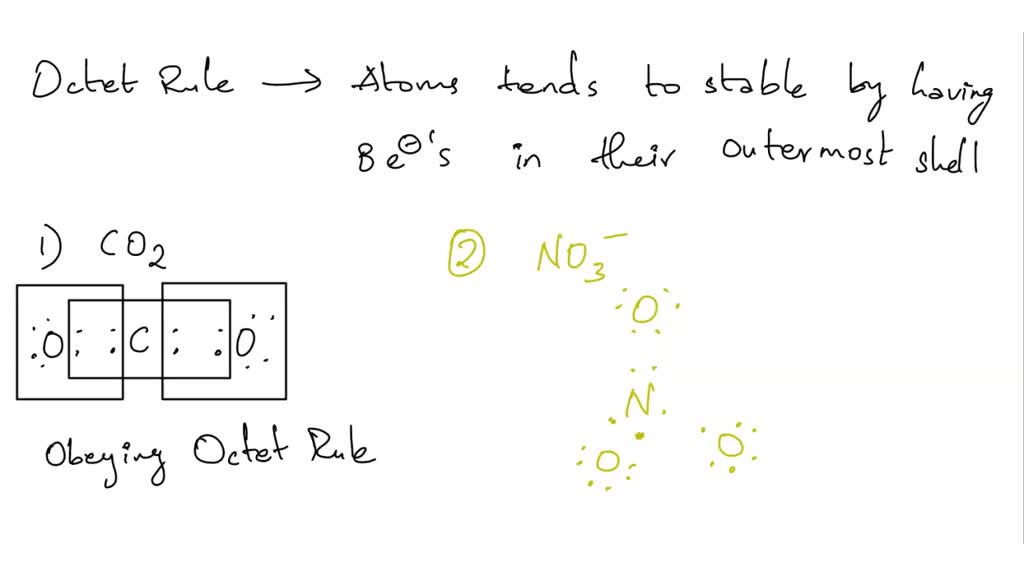 Octet Rule → Atoms tends to stable by having
8 e⊖'s in their outermost shell
1) CO₂
② NO₃⁻
:O: :C: :O:
O
N
O
O
Obeying Octet Rule